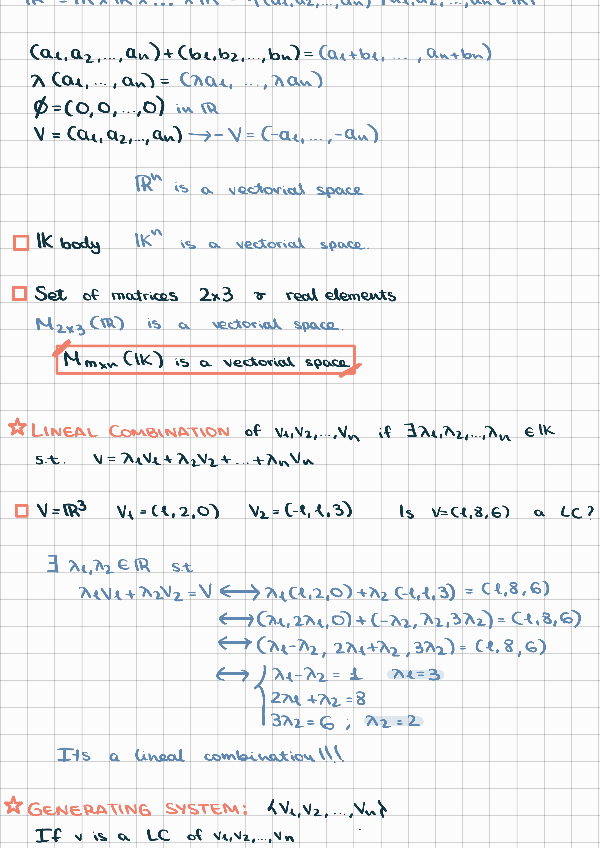 (a1,a2,...,an)+(b1,b2,...,bn)=(a1+b1,...,an+bn)
λ(a1,...,an)=(λa1,...,λan)
∅=(0,0,...,0) in IR
V=(a1,a2,...,an)→-V=(-a1,...,-an)
IRⁿ is a vectorial space
IK body IKⁿ is a vectorial space.
Set of matrices 2x3 & real elements
M2x3 (IR) is a vectorial space.
Mmxn (IK) is a vectorial space
☆ LINEAL COMBINATION of v1,v2,...,vn if ∃λ1,λ2,...,λn ∈ IK
s.t. v=λ1v1+λ2v2+...+λnvn
V=IR³ V1=(1,2,0) V2=(-1,1,3) Is v=(1,8,6) a LC?
∃ λ1,λ2 ∈ IR s.t
λ1v1+λ2v2=V ↔ λ1(1,2,0)+λ2(-1,1,3)=(1,8,6)
↔ (λ1,2λ1,0)+(-λ2,λ2,3λ2)=(1,8,6)
↔ (λ1-λ2, 2λ1+λ2, 3λ2)=(1,8,6)
↔ { λ1-λ2=1 λ1=3
2λ1+λ2=8
3λ2=6 ; λ2=2
Its a lineal combination!!!
☆ GENERATING SYSTEM: {v1,v2,...,vn}
If v is a LC of v1,v2,...,vn